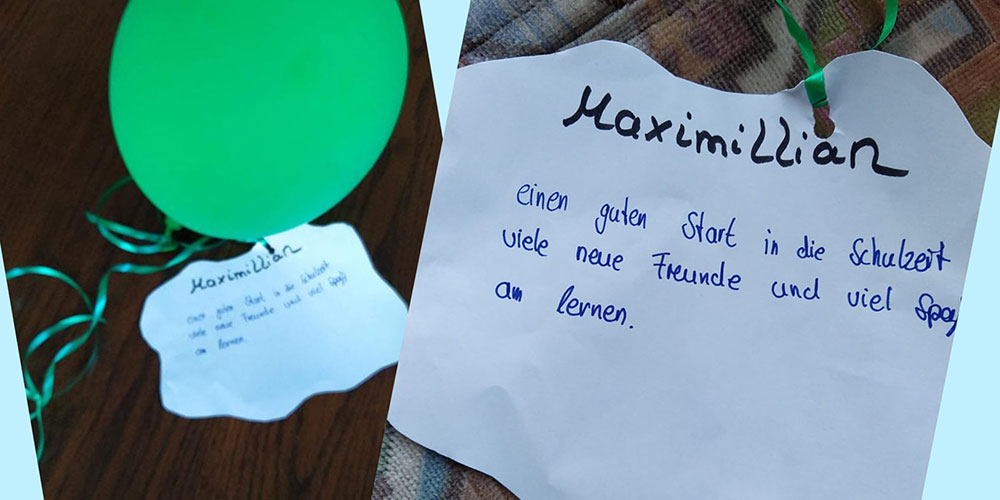 Maximillian
einen guten Start in die Schulzeit
viele neue Freunde und viel Spaß
am lernen.
Maximillian
einen guten Start in die Schulzeit
viele neue Freunde und viel Spaß
am lernen.